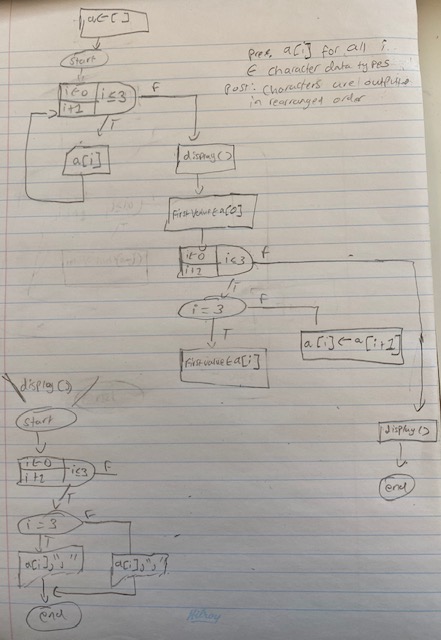 a ← [ ]
start
pre: a[i] for all i
∈ character data types
post: characters are output
in rearranged order
i ← 0
i+1
i ≤ 3
F
T
a[i]
display()
FirstValue ← a[0]
i ← 0
i+1
i ≤ 3
F
T
i = 3
F
T
a[i] ← a[i+1]
FirstValue ← a[i]
display()
start
display()
end
i ← 0
i+1
i ≤ 3
F
T
i = 3
F
T
a[i], " "
a[i], ", "
end
Hilroy